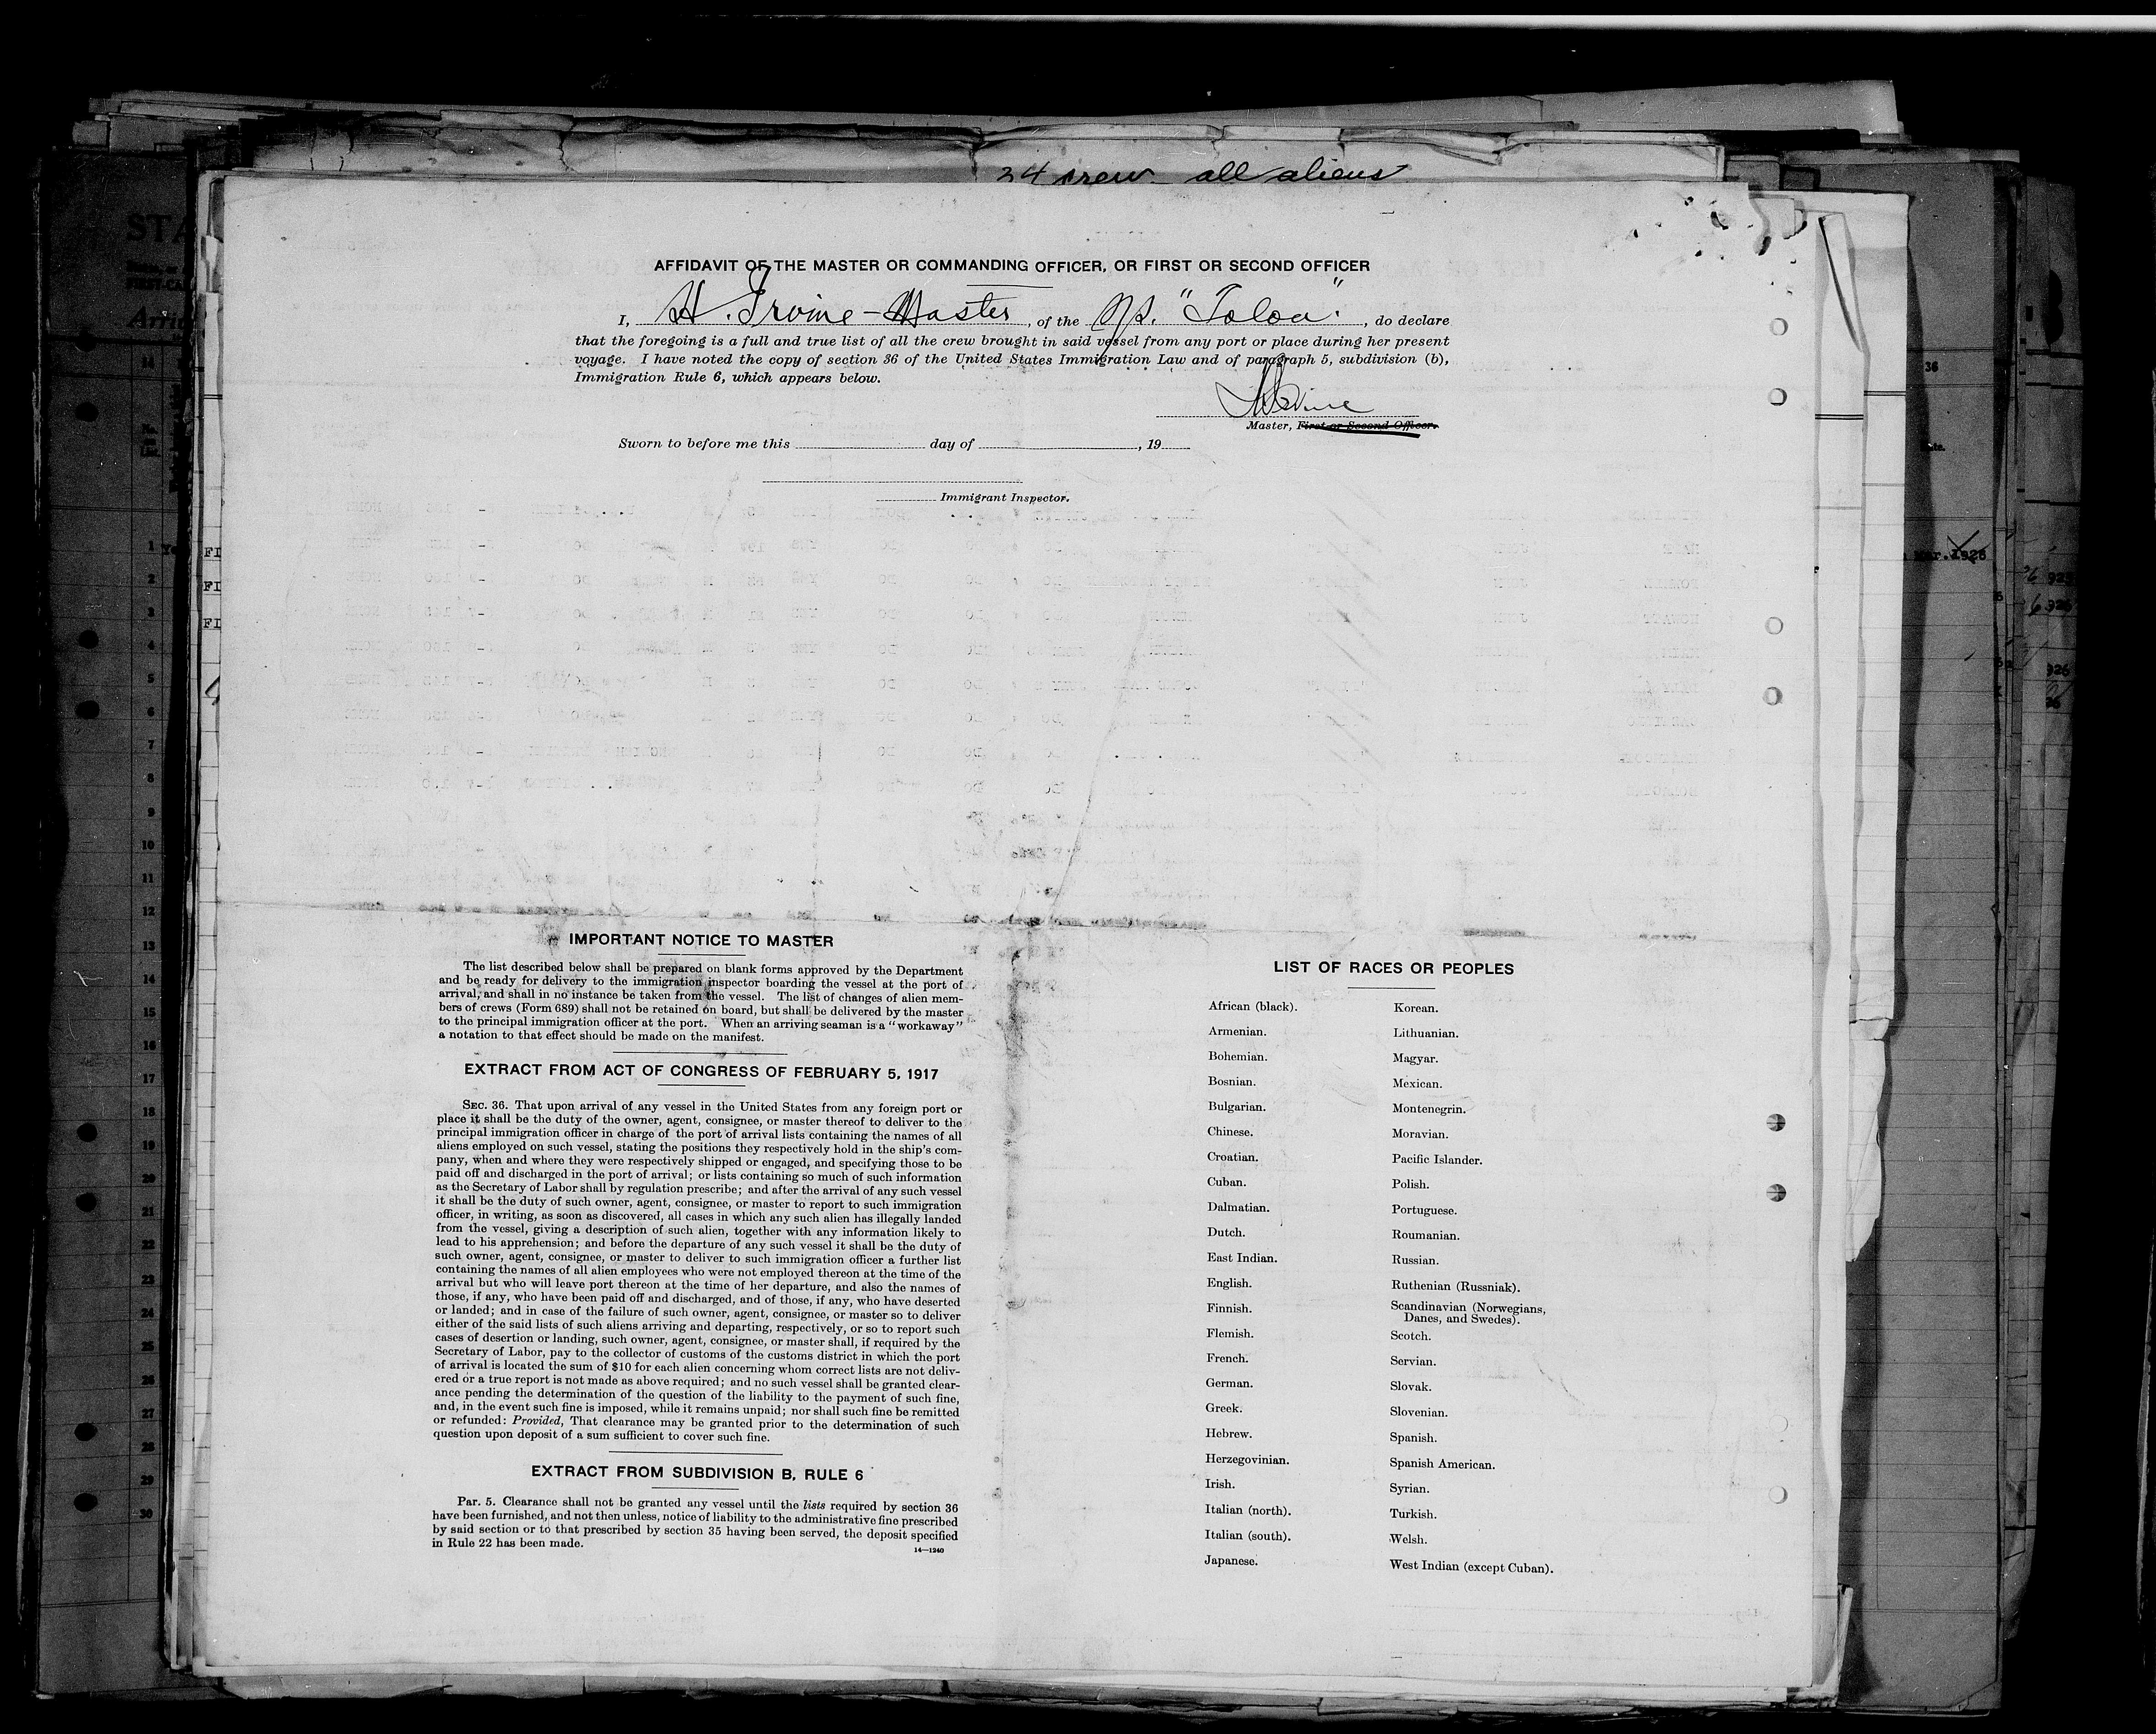 34 crew all aliens
AFFIDAVIT OF THE MASTER OR COMMANDING OFFICER, OR FIRST OR SECOND OFFICER
I, H. Irvine - Master, of the SS. "Toloa", do declare
that the foregoing is a full and true list of all the crew brought in said vessel from any port or place during her present
voyage. I have noted the copy of section 36 of the United States Immigration Law and of paragraph 5, subdivision (b),
Immigration Rule 6, which appears below.
HIrvine
Master, First or Second Officer.
Sworn to before me this day of , 19
Immigrant Inspector.
IMPORTANT NOTICE TO MASTER
The list described below shall be prepared on blank forms approved by the Department
and be ready for delivery to the immigration inspector boarding the vessel at the port of
arrival, and shall in no instance be taken from the vessel. The list of changes of alien mem-
bers of crews (Form 689) shall not be retained on board, but shall be delivered by the master
to the principal immigration officer at the port. When an arriving seaman is a "workaway"
a notation to that effect should be made on the manifest.
EXTRACT FROM ACT OF CONGRESS OF FEBRUARY 5, 1917
SEC. 36. That upon arrival of any vessel in the United States from any foreign port or
place it shall be the duty of the owner, agent, consignee, or master thereof to deliver to the
principal immigration officer in charge of the port of arrival lists containing the names of all
aliens employed on such vessel, stating the positions they respectively hold in the ship's com-
pany, when and where they were respectively shipped or engaged, and specifying those to be
paid off and discharged in the port of arrival; or lists containing so much of such information
as the Secretary of Labor shall by regulation prescribe; and after the arrival of any such vessel
it shall be the duty of such owner, agent, consignee, or master to report to such immigration
officer, in writing, as soon as discovered, all cases in which any such alien has illegally landed
from the vessel, giving a description of such alien, together with any information likely to
lead to his apprehension; and before the departure of any such vessel it shall be the duty of
such owner, agent, consignee, or master to deliver to such immigration officer a further list
containing the names of all alien employees who were not employed thereon at the time of the
arrival but who will leave port thereon at the time of her departure, and also the names of
those, if any, who have been paid off and discharged, and of those, if any, who have deserted
or landed; and in case of the failure of such owner, agent, consignee, or master so to deliver
either of the said lists of such aliens arriving and departing, respectively, or so to report such
cases of desertion or landing, such owner, agent, consignee, or master shall, if required by the
Secretary of Labor, pay to the collector of customs of the customs district in which the port
of arrival is located the sum of $10 for each alien concerning whom correct lists are not deliv-
ered or a true report is not made as above required; and no such vessel shall be granted clear-
ance pending the determination of the question of the liability to the payment of such fine,
and, in the event such fine is imposed, while it remains unpaid; nor shall such fine be remitted
or refunded: Provided, That clearance may be granted prior to the determination of such
question upon deposit of a sum sufficient to cover such fine.
EXTRACT FROM SUBDIVISION B, RULE 6
Par. 5. Clearance shall not be granted any vessel until the lists required by section 36
have been furnished, and not then unless, notice of liability to the administrative fine prescribed
by said section or to that prescribed by section 35 having been served, the deposit specified
in Rule 22 has been made.
14—1240
LIST OF RACES OR PEOPLES
African (black).
Armenian.
Bohemian.
Bosnian.
Bulgarian.
Chinese.
Croatian.
Cuban.
Dalmatian.
Dutch.
East Indian.
English.
Finnish.
Flemish.
French.
German.
Greek.
Hebrew.
Herzegovinian.
Irish.
Italian (north).
Italian (south).
Japanese.
Korean.
Lithuanian.
Magyar.
Mexican.
Montenegrin.
Moravian.
Pacific Islander.
Polish.
Portuguese.
Roumanian.
Russian.
Ruthenian (Russniak).
Scandinavian (Norwegians,
Danes, and Swedes).
Scotch.
Servian.
Slovak.
Slovenian.
Spanish.
Spanish American.
Syrian.
Turkish.
Welsh.
West Indian (except Cuban).